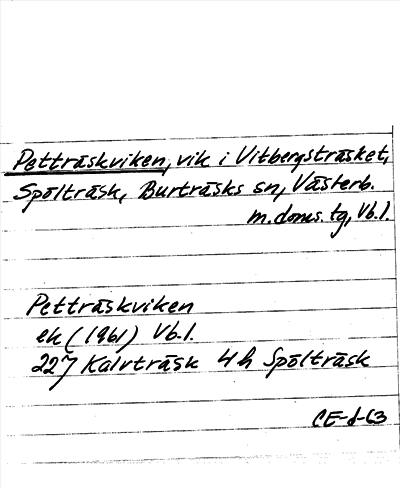 Petträskviken, vik i Vitbergsträsket,
Spölträsk, Burträsks sn, Västerb.
m.doms.tg, Vb.l.
Petträskviken
ek (1961) Vb.l.
227 Kalvträsk 4h Spölträsk
CE-d-63